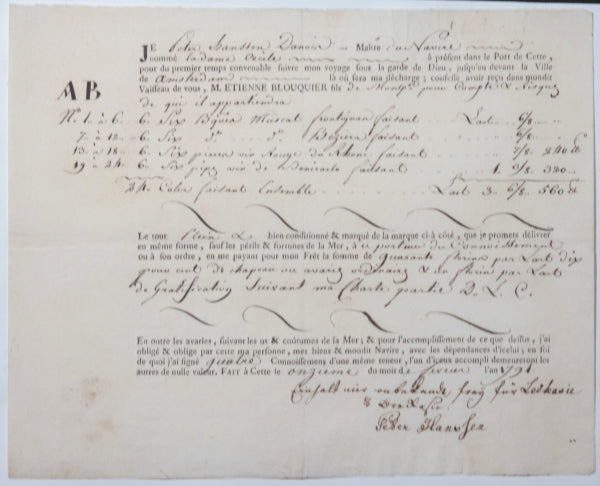 JE Peter Hanssen Danois Maître du Navire
nommé la dame Cecile à présent dans le Port de Cette,
pour du premier temps convenable suivre mon voyage sous la garde de Dieu, jusqu'au devant la Ville
de Amsterdam là où sera ma décharge; confesse avoir reçu dans mondit
Vaisseau de vous, M. ETIENNE BLOUQUIER fils de pour Compte & Risques
de qui il appartiendra
A B
No. 1 à 6 6 Six Bques Muscat frontignan faisant Last 6/8
7 à 12 6 Six do. do. Beziers faisant 6/8
13 à 18 6 Six pieces vin Rouge du Rhone faisant 7/8 240
19 à 24 6 Six vin de faisant 1 6/8 320
24 Colis faisant Ensemble Last 3 6/8 560
Le tout plein & bien conditionné & marqué de la marque ci-à côté, que je promets délivrer
en même forme, sauf les périls & fortunes de la Mer, à ce porteur du Connoissement
ou à son ordre, en me payant pour mon Frêt la somme de quarante florins par Last dix
pour cent de chapeau ou avaries ordinaires & un florin par Last
de Gratification Suivant ma Charte partie D. L. C.
En outre les avaries, suivant les us & coûtumes de la Mer; & pour l'accomplissement de ce que dessus, j'ai
obligé & oblige par cette ma personne, mes biens & moudit Navire, avec les dépendances d'icelui; en foi
de quoi j'ai signé quatre Connoissemens d'une même teneur, l'un d'iceux accompli demeureront les
autres de nulle valeur. FAIT à Cette le onzieme du mois de fevrier l'an 1791
unbekandt frey für Leckasie
&
Peter Hanssen